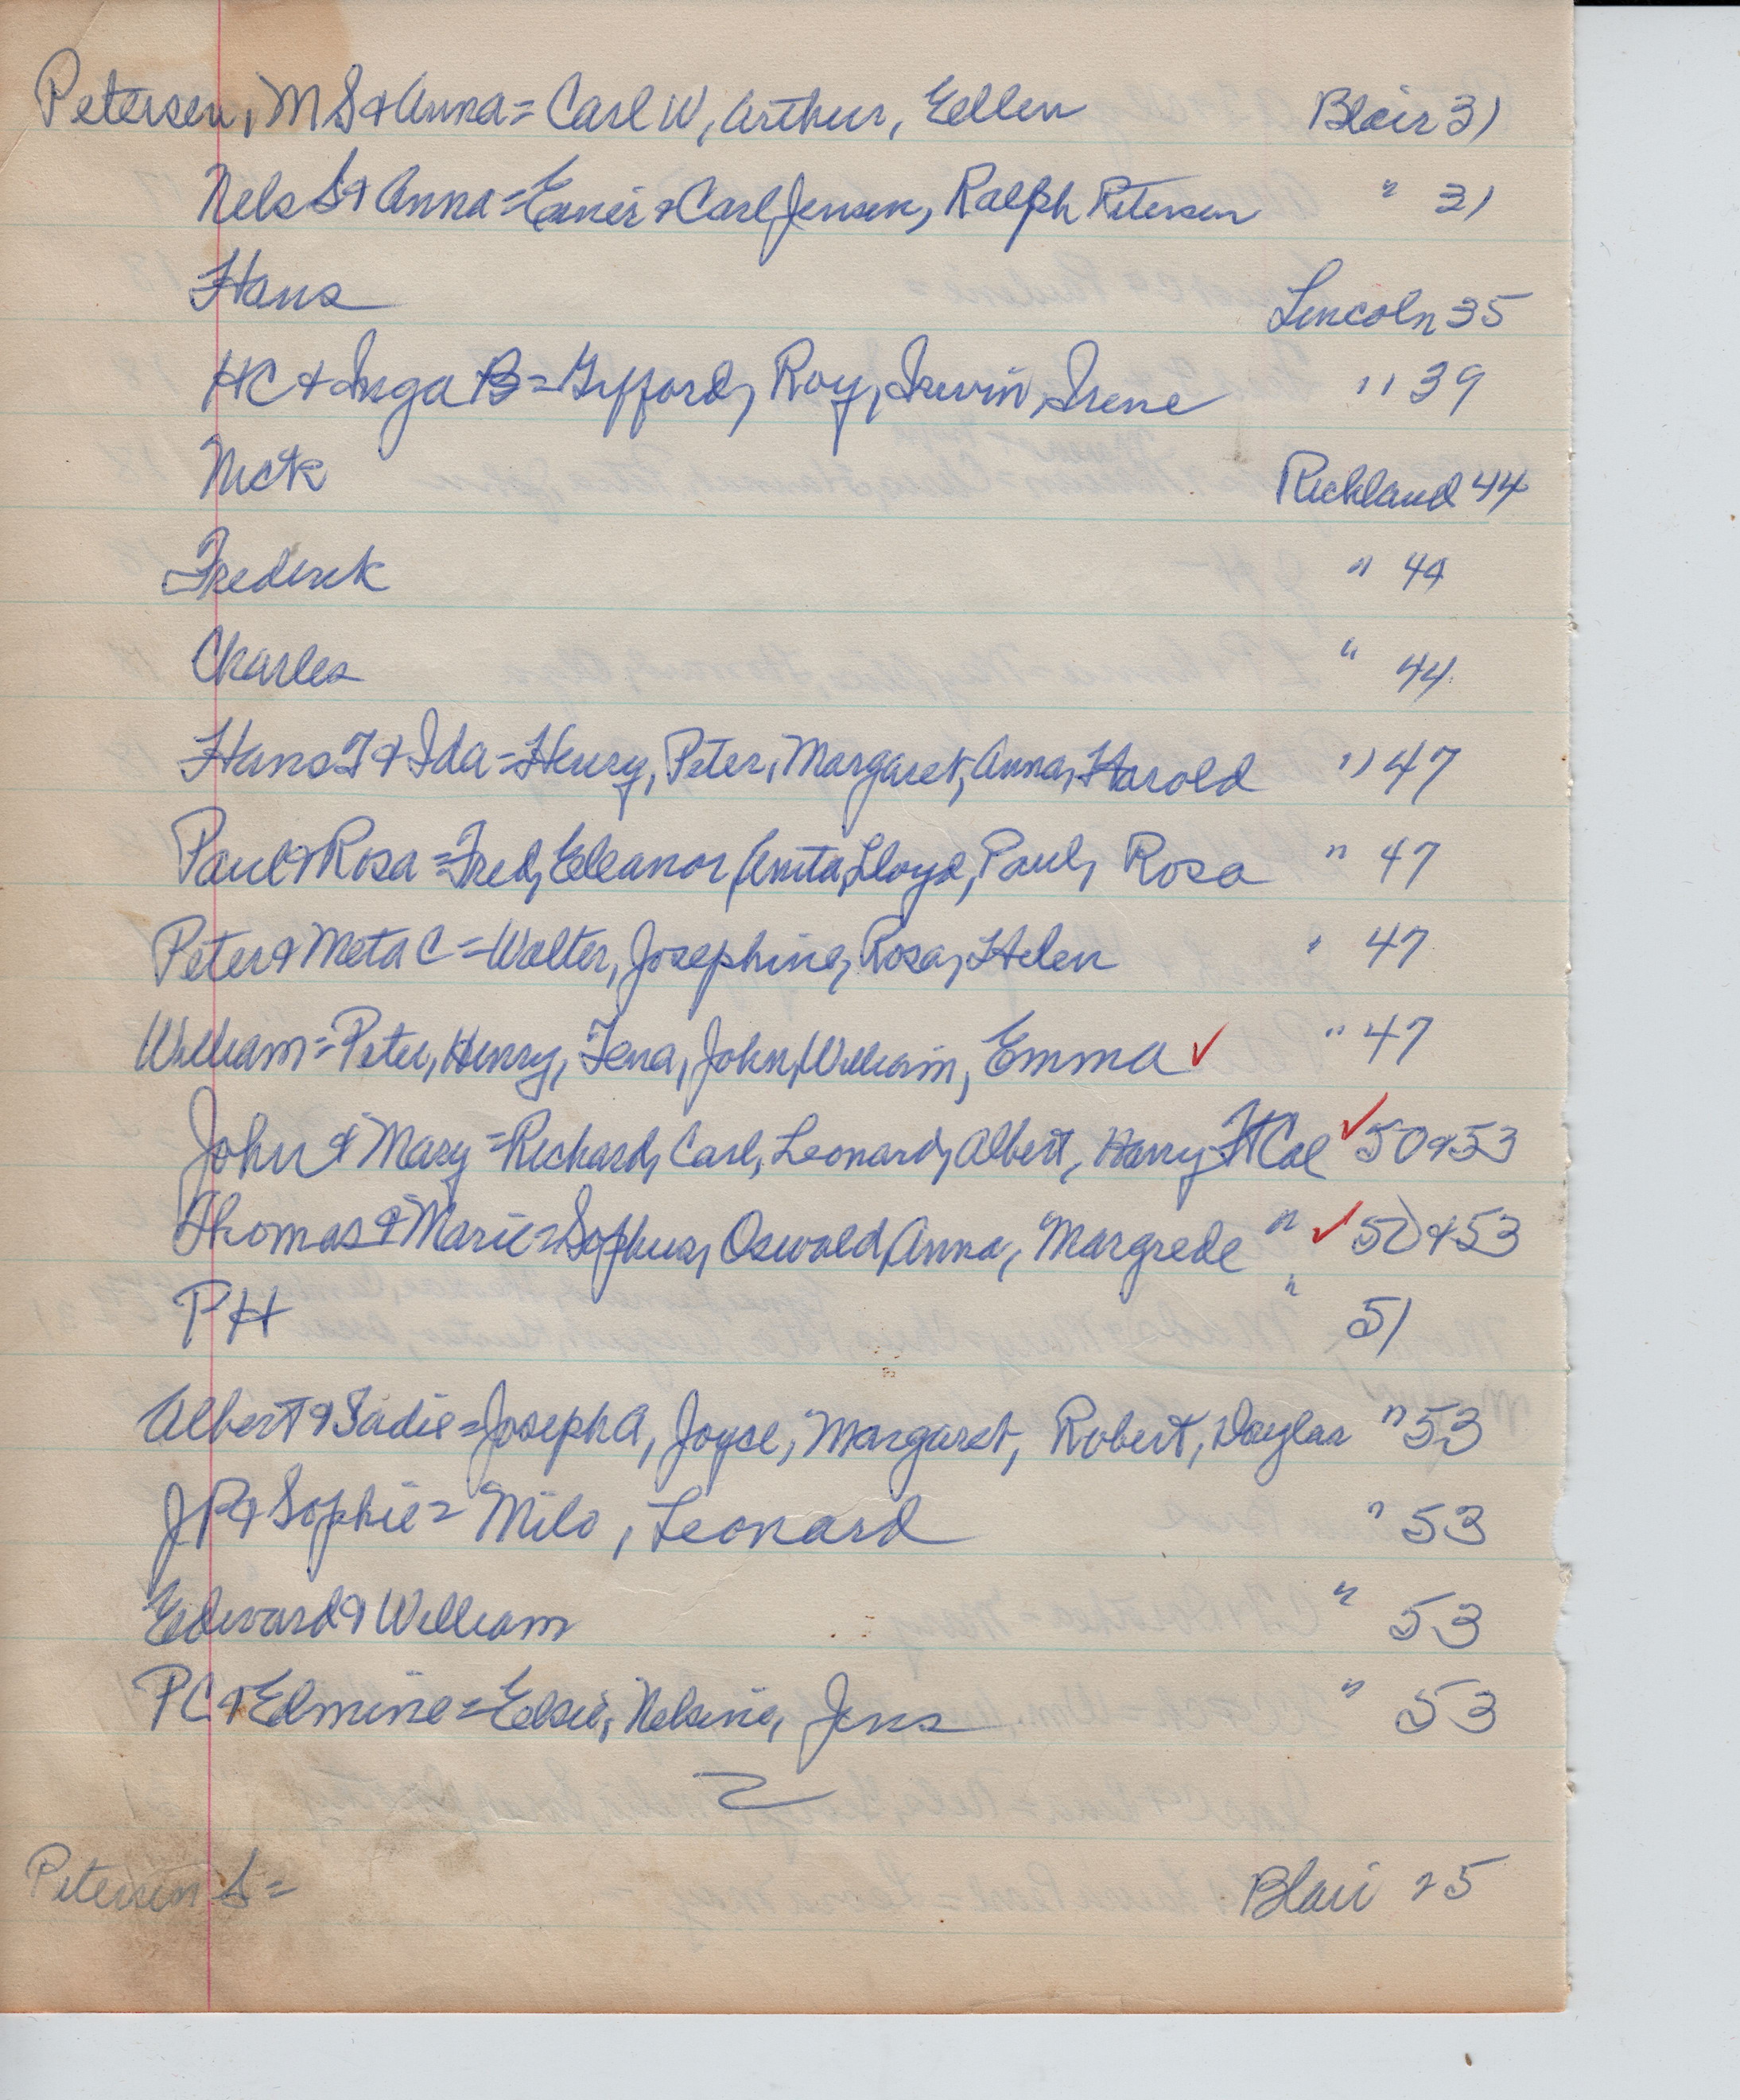 Petersen, M S & Anna = Carl W, Arthur, Eellen Blair 31
Nels S & Anna = Einer & Carl Jensen, Ralph Petersen " 31
Hans Lincoln 35
HC & Inga B = Gifford, Roy, Irwin, Irene " 39
Nick Richland 44
Frederick " 44
Charles " 44
Hans T & Ida = Henry, Peter, Margaret, Anna, Harold " 47
Paul & Rosa = Fred, Eleanor, Anita, Lloyd, Paul, Rosa " 47
Peter & Meta C = Walter, Josephine, Rosa, Helen " 47
William = Peter, Henry, Tena, John, William, Emma ✓ " 47
John & Mary = Richard, Carl, Leonard, Albert, Harry Ft Cal ✓ 50 & 53
Thomas & Marie = Sophus, Oswald, Anna, Margrede " ✓ 50 & 53
PH " 51
Albert & Sadie = Joseph A, Joyce, Margaret, Robert, Douglas " 53
J P & Sophie = Milo, Leonard " 53
Edward & William " 53
PC & Elmine = Elsie, Nelsine, Jens " 53
Petersen S = Blair 25